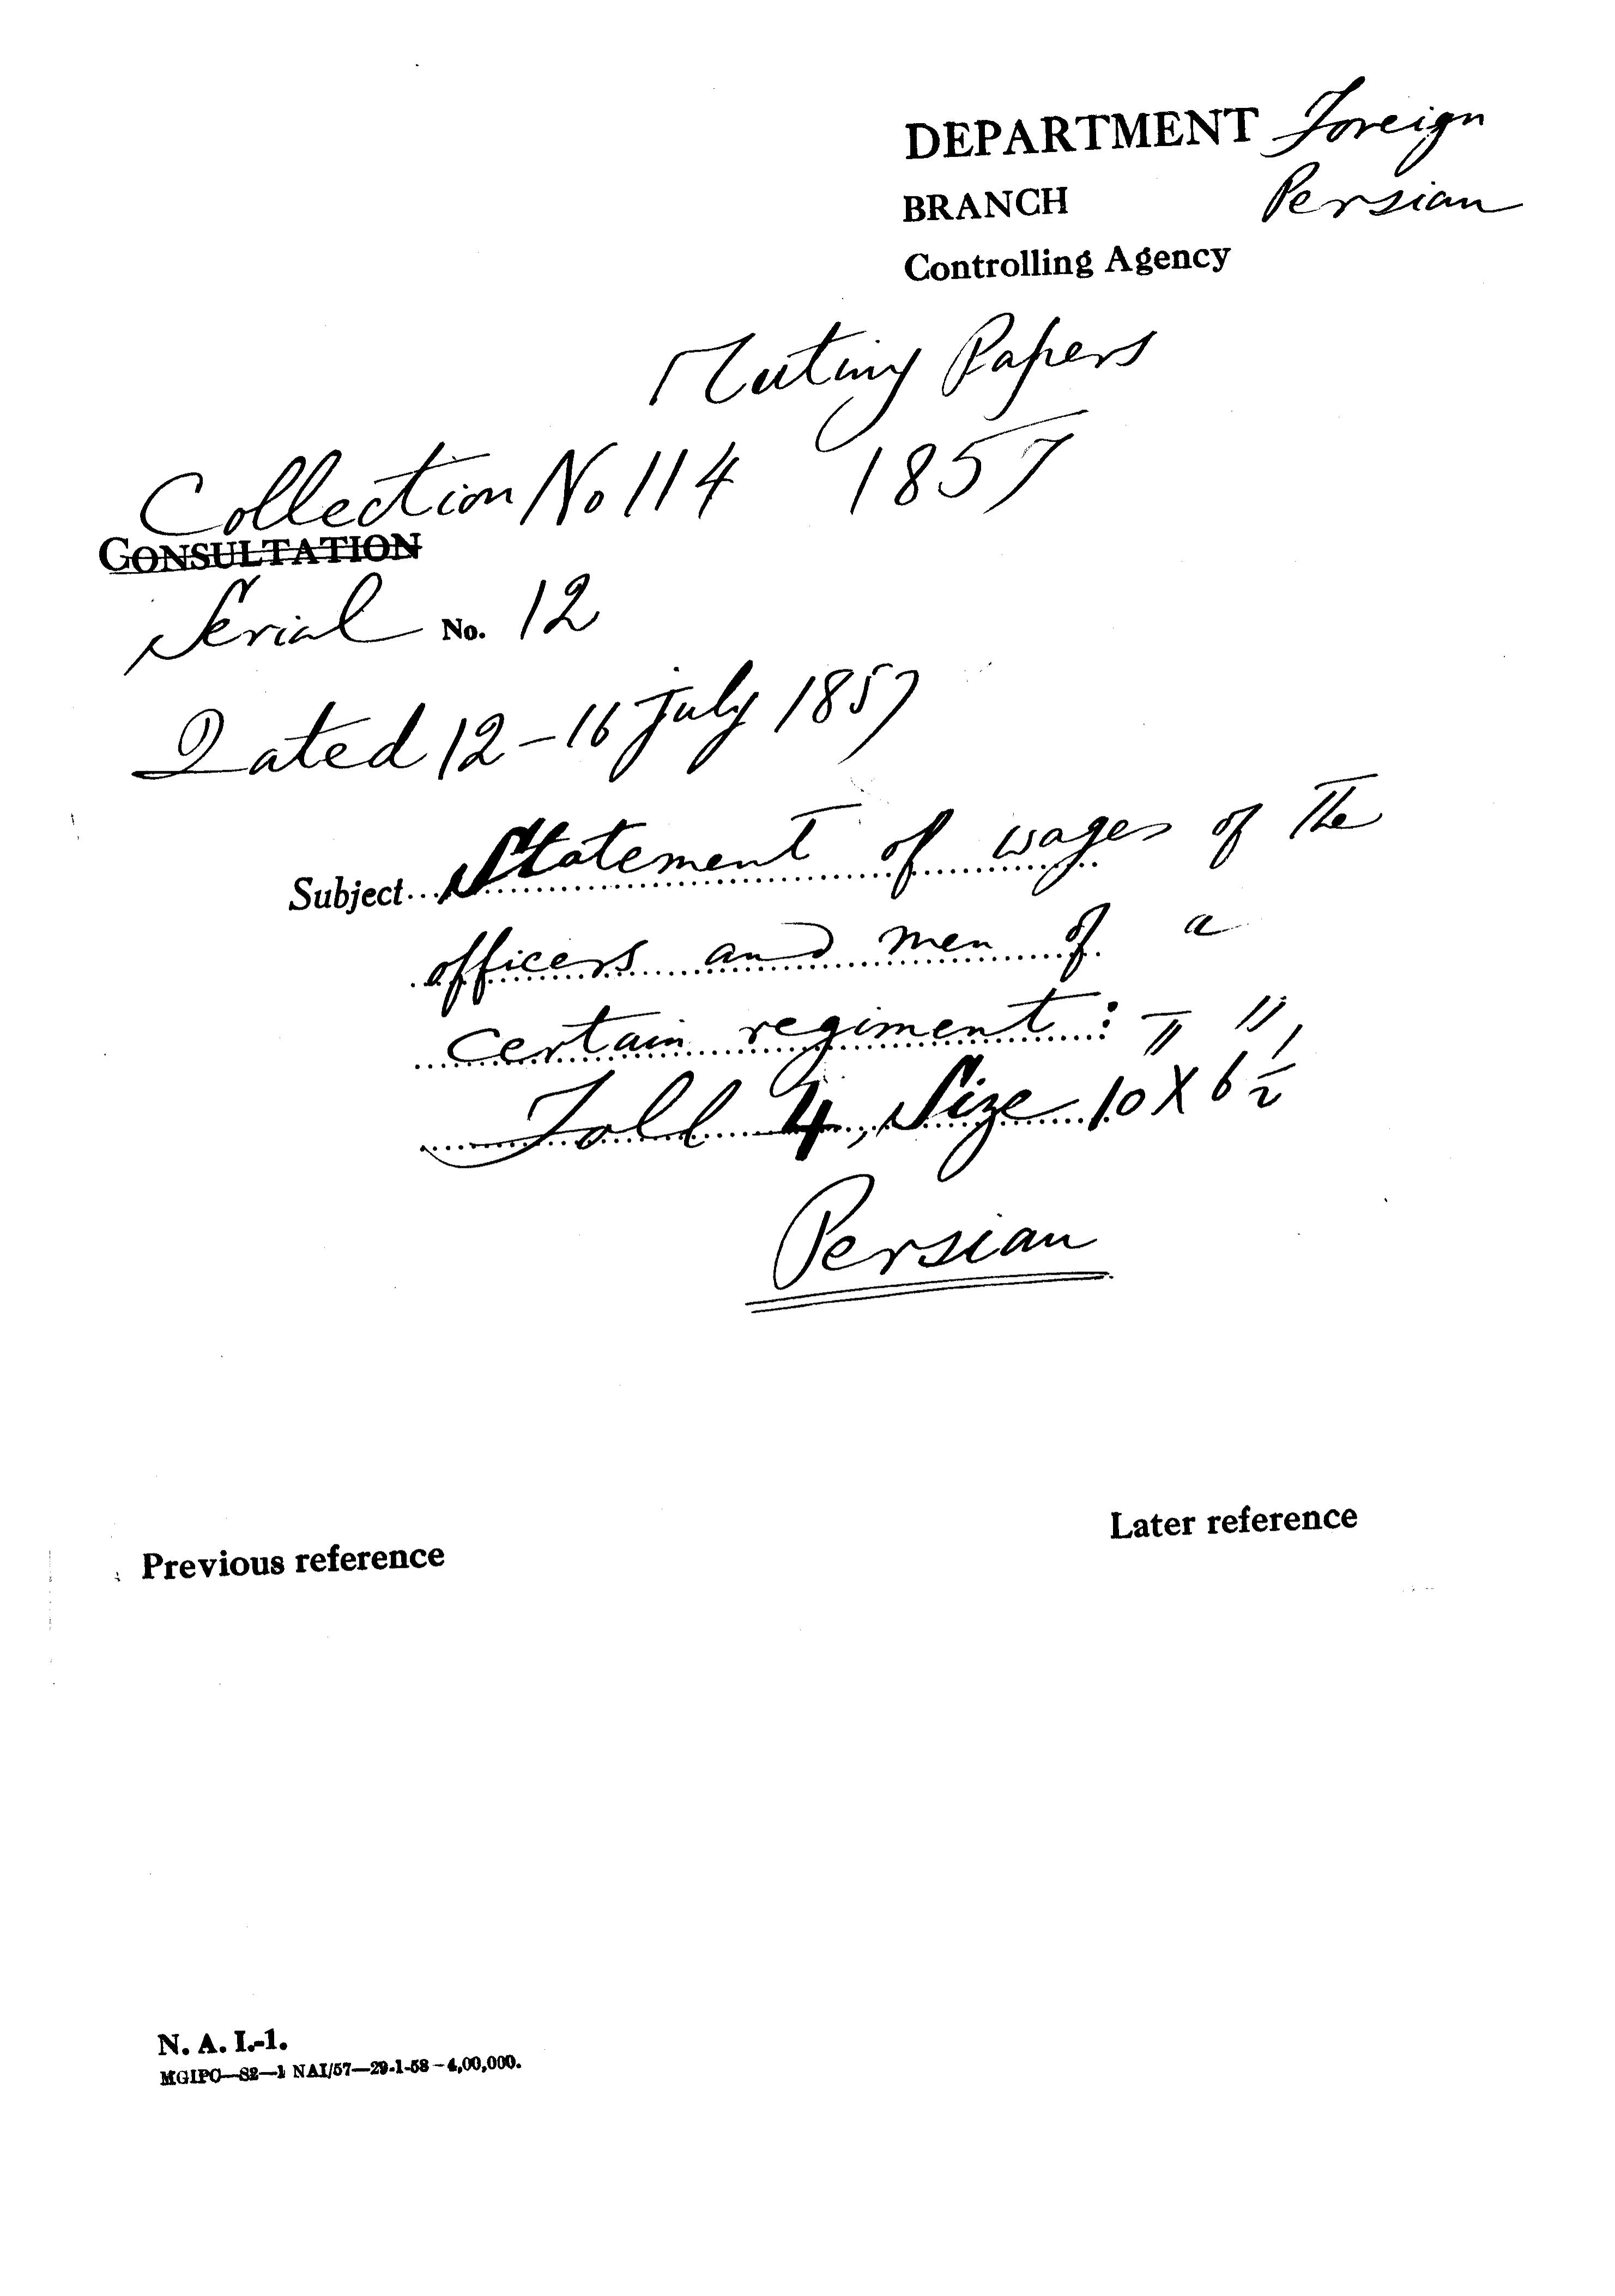 DEPARTMENT Foreign
BRANCH Persian
Controlling Agency
Mutiny Papers
Collection No 114 1857
CONSULTATION
Serial No. 12
Dated 12-16 July 1857
Subject Statement of wages of The
officers and men of a
certain regiment:
Foll 4, Size 10" X 6½"
Persian
Later reference
Previous reference
N. A. I.-1.
MGIPC—S2—1 NAI/57—29-1-58—4,00,000.